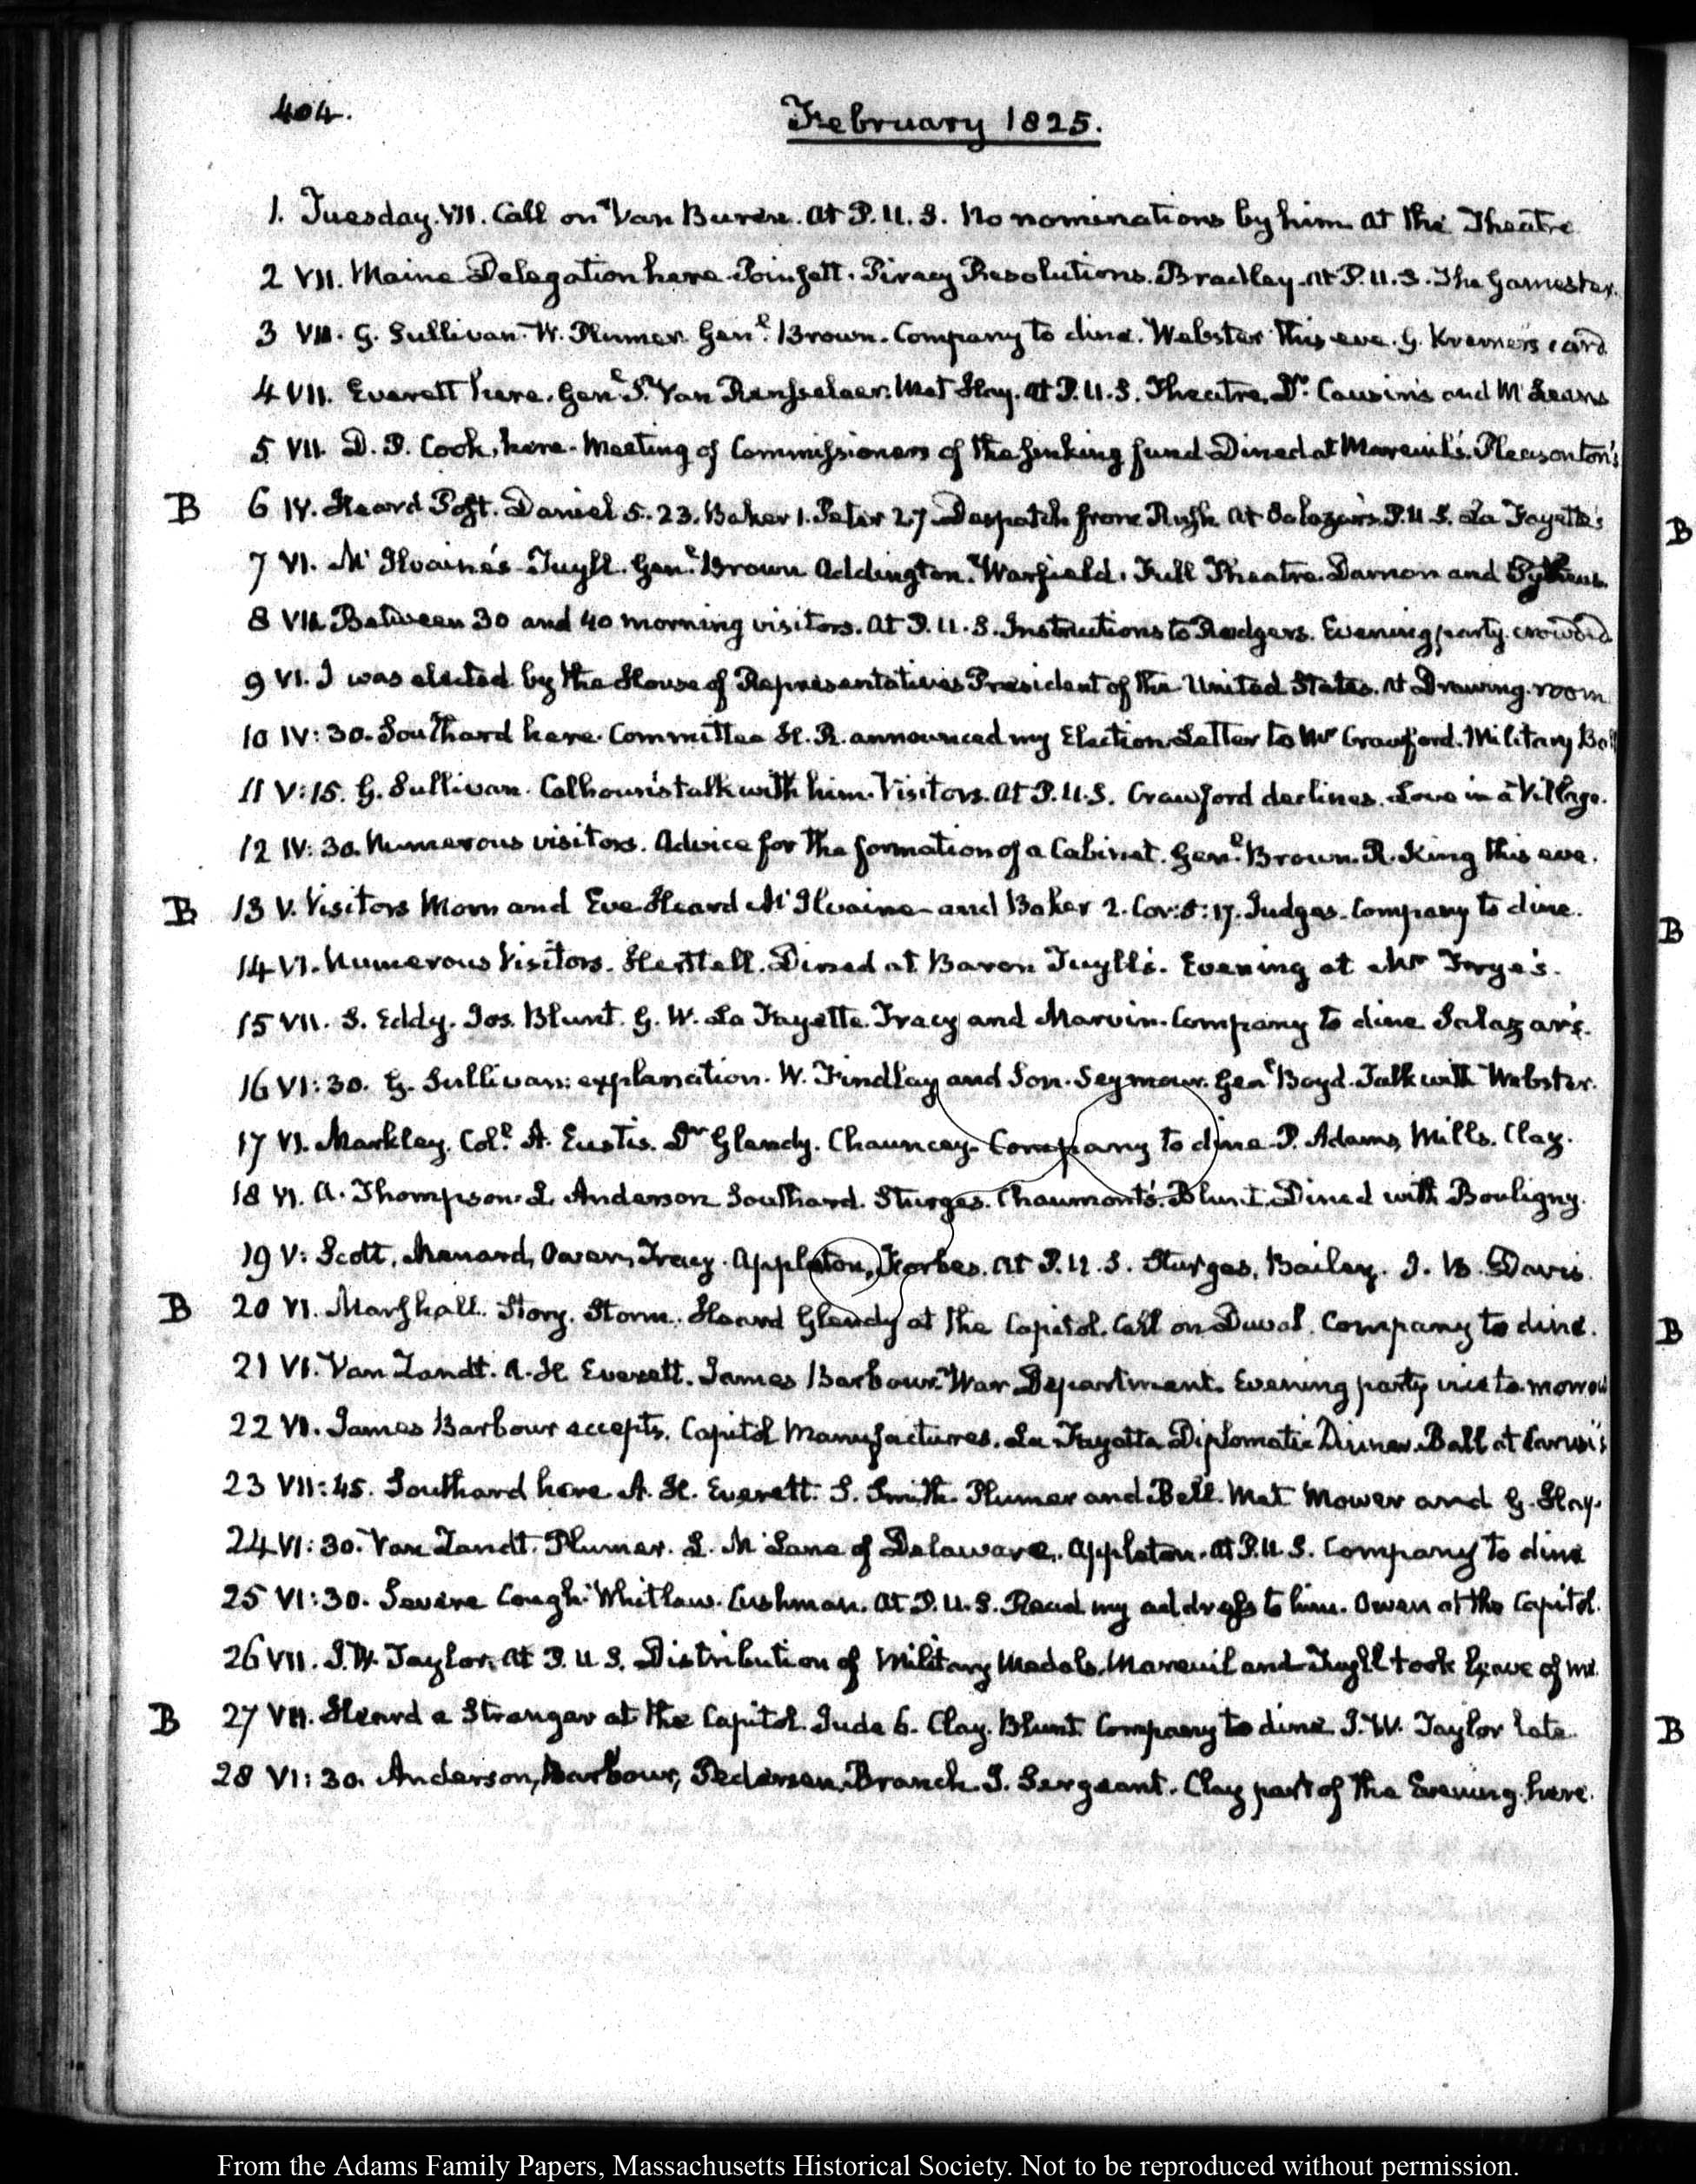 404.
February 1825.
1. Tuesday. VII. Call on Van Buren. At P.U.S. No nominations by him. At the Theatre
2 VII. Maine Delegation here. Poinsett. Piracy Resolutions. Bradley. At P.U.S. The Gamester.
3 VII. G. Sullivan. W. Plumer. Genl. Brown. Company to dine. Webster this eve. G. Kremer's card
4 VII. Everett here. Genl. S. Van Rensselaer. Met Hay. At P.U.S. Theatre. Dr. Cousin's and McLeans
5 VII. D. P. Cook, here. Meeting of Commissioners of the sinking fund. Dined at Mareuil's. Pleasonton's
B 6 IV. Heard Post. Daniel 5. 23. Baker 1. Peter 2.7. Despatch from Rush. At Salazar's. P.U.S. La Fayette's
7 VI. McIlvaine's. Tuyll. Genl. Brown. Addington. Warfield. Full Theatre. Damon and Pythias.
8 VII. Between 30 and 40 morning visitors. At P.U.S. Instructions to Rodgers. Evening party. crowded
9 VI. I was elected by the House of Representatives President of the United States. At Drawing-room
10 IV:30. Southard here. Committee H.R. announced my Election. Letter to Mr Crawford. Military Ball
11 V:15. G. Sullivan. Calhoun's talk with him. Visitors. At P.U.S. Crawford declines. Love in a Village.
12 IV:30. Numerous visitors. Advice for the formation of a Cabinet. Genl. Brown. R. King this eve.
B 13 V. Visitors Morn and Eve. Heard McIlvaine and Baker 2. Cor: 5:17. Judges. Company to dine.
14 VI. Numerous Visitors. Herttell. Dined at Baron Tuyll's. Evening at Mr Frye's.
15 VII. S. Eddy. Jos. Blunt. G. W. La Fayette. Tracy and Marvin. Company to dine. Salazar's.
16 VI:30. G. Sullivan: explanation. W. Findlay and Son. Seymour. Genl Boyd. Talk with Webster.
17 VI. Markley. Coll. A. Eustis. Dr Glendy. Chauncey. Company to dine. P. Adams, Mills. Clay.
18 VI. A. Thompson. L. Anderson. Southard. Sturges. Chaumont's. Blunt. Dined with Bouligny.
19 V: Scott, Menard, Owen, Tracy. Appleton, Forbes. At P.U.S. Sturges, Bailey. J. B. Davis.
B 20 VI. Marshall. Story. Storm. Heard Glendy at the Capitol. Call on Duval. Company to dine.
21 VI. Van Zandt. A. H. Everett. James Barbour. War Department. Evening party vice tomorrow
22 VI. James Barbour accepts. Capitol Manufactures. La Fayette. Diplomatic Dinner. Ball at Carusi's
23 VII:45. Southard here. A. H. Everett. S. Smith. Plumer and Bell. Met Mower and G. Hay.
24 VI:30. Van Zandt. Plumer. L. McLane of Delaware. Appleton. At P.U.S. Company to dine
25 VI:30. Severe Cough. Whitlaw. Cushman. At P.U.S. Read my address to him. Owen at the Capitol.
26 VII. J. W. Taylor. At P.U.S. Distribution of Military Medals. Mareuil and Tuyll took leave of me.
B 27 VII. Heard a Stranger at the Capitol. Jude 6. Clay. Blunt. Company to dine. J. W. Taylor late.
28 VI:30. Anderson, Barbour, Pedersen, Branch. J. Sergeant. Clay part of the Evening here.
B
B
B
B
From the Adams Family Papers, Massachusetts Historical Society. Not to be reproduced without permission.